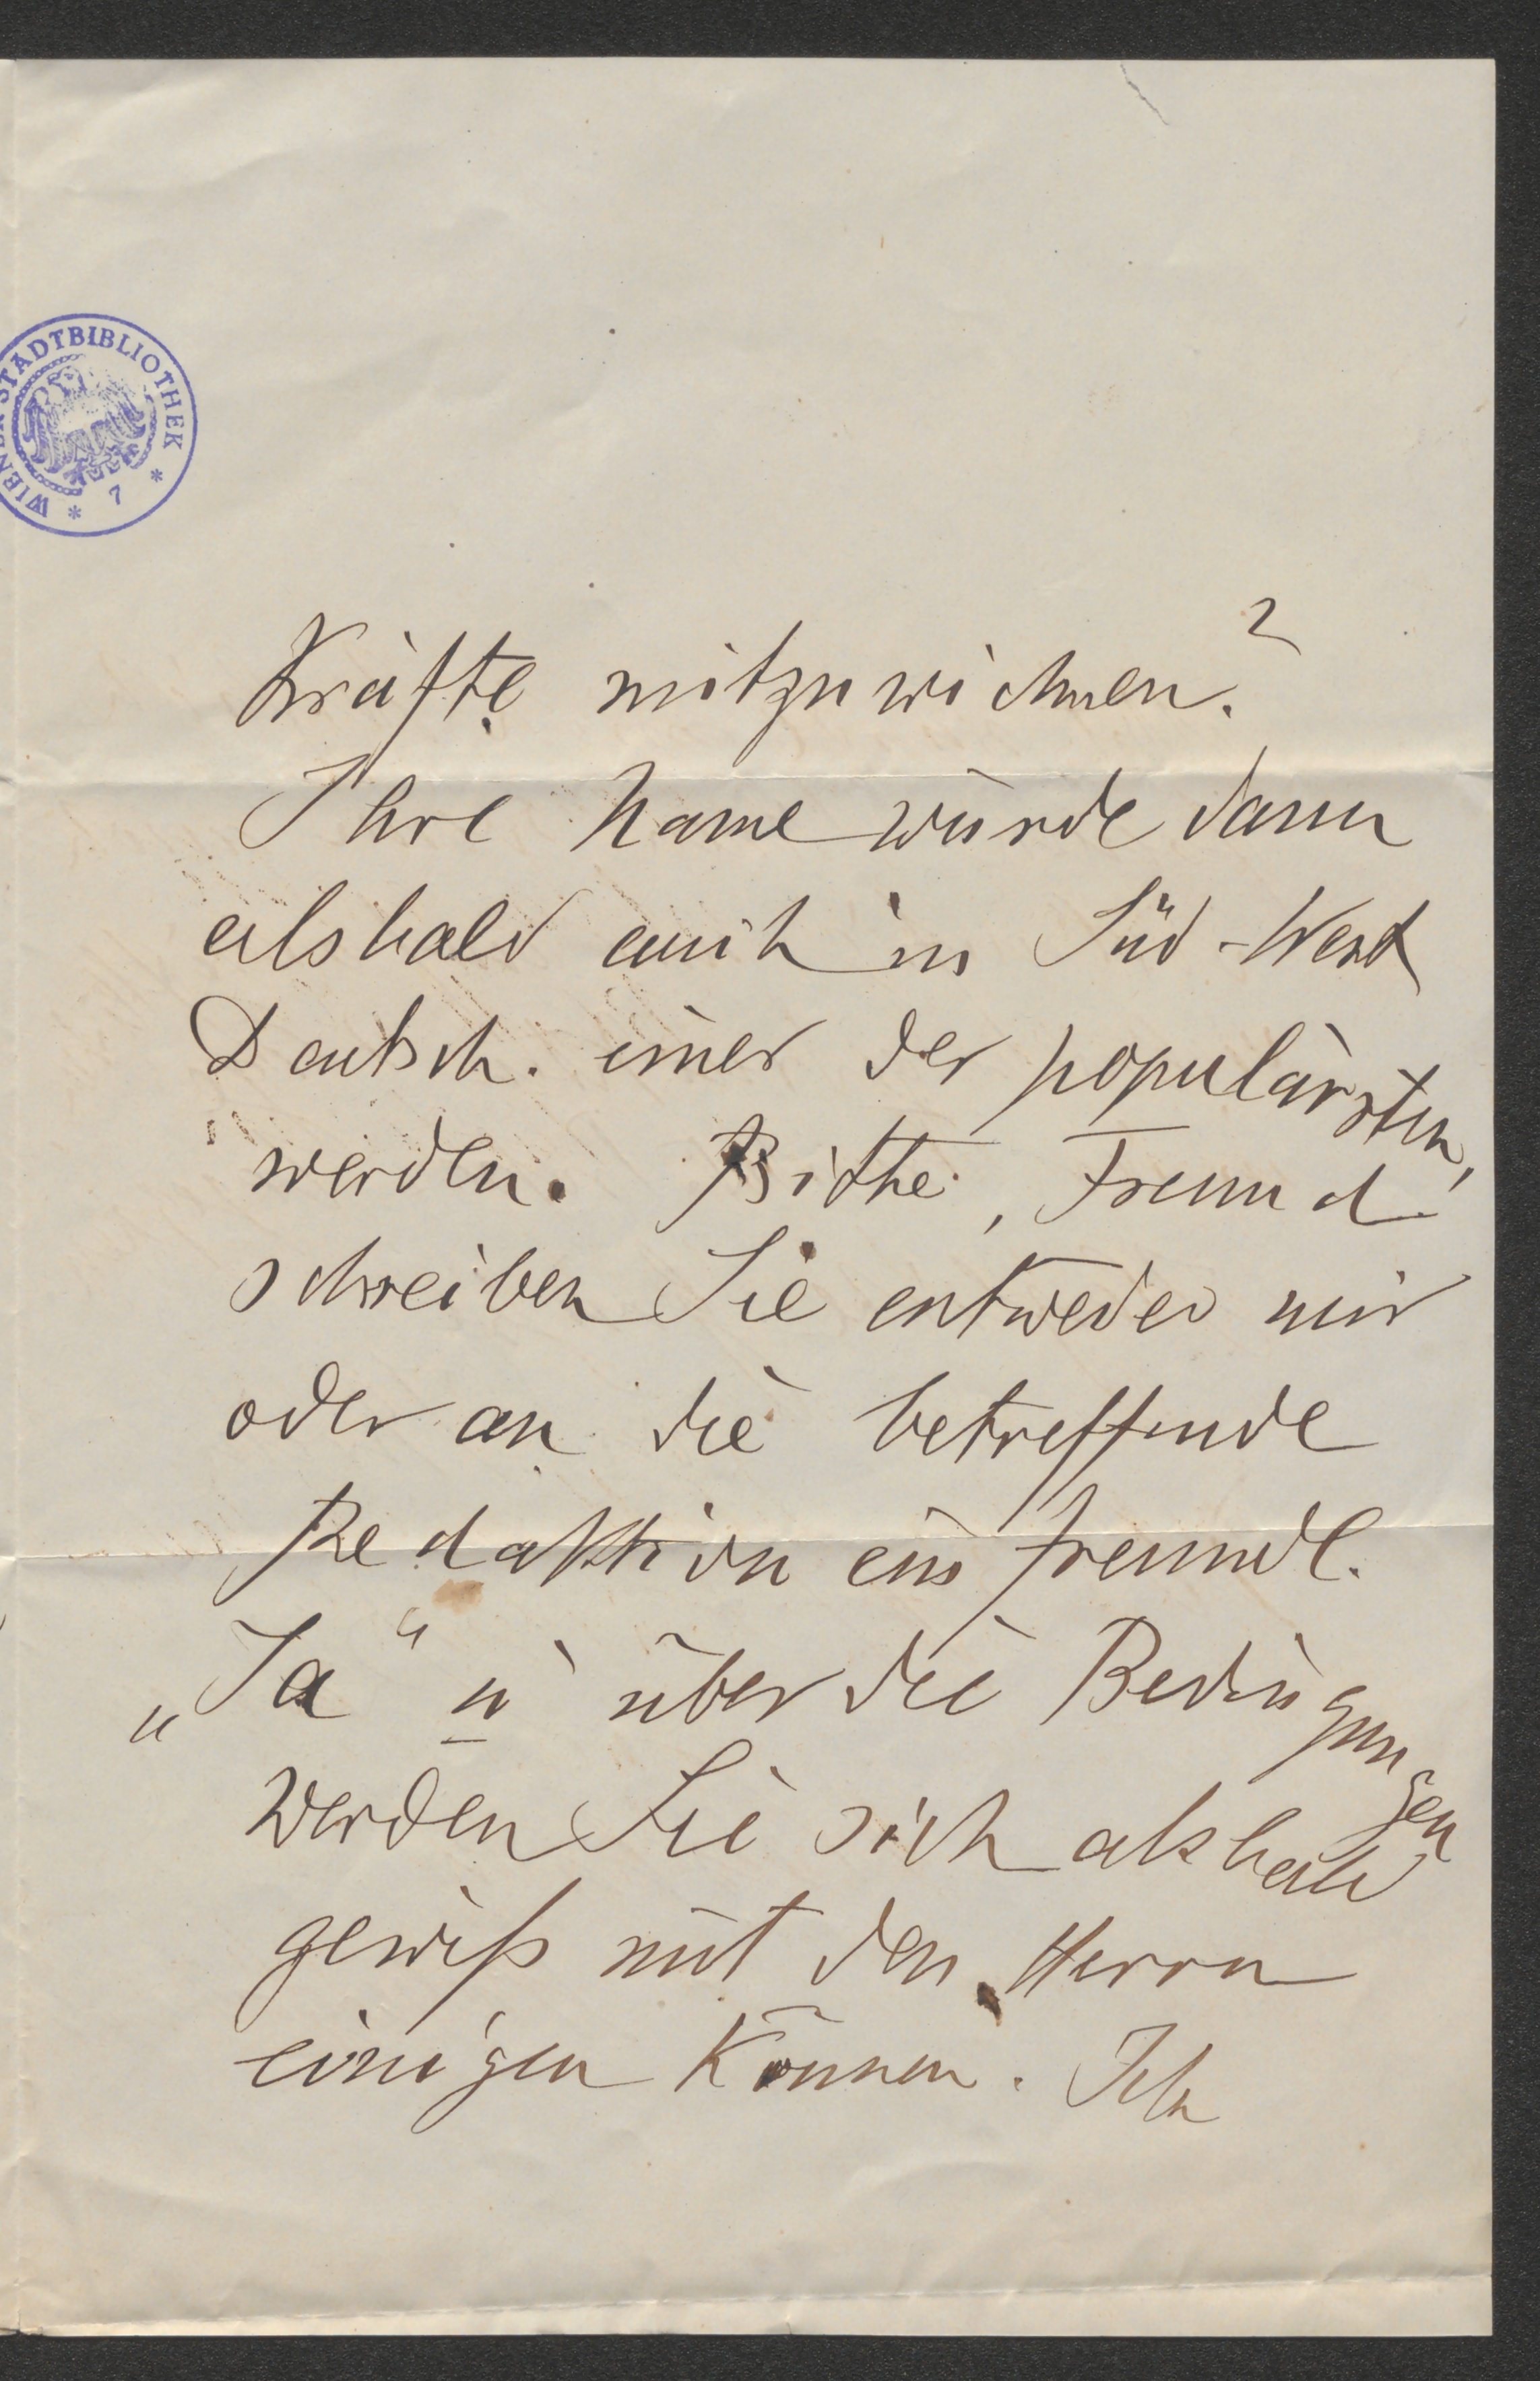 WIENER STADTBIBLIOTHEK * 7 *
Kräfte mitzuwidmen?
Ihre Name würde dann
alsbald auch in Süd-West
Deutsch. einer der populärsten
werden. Bitte, Freund!
schreiben Sie entweder mir
oder an die betreffende
Redaktion ein freundl.
„Ja“ u über die Bedingungen
werden Sie sich alsbald
gewiß mit den Herrn
einigen können. Ich